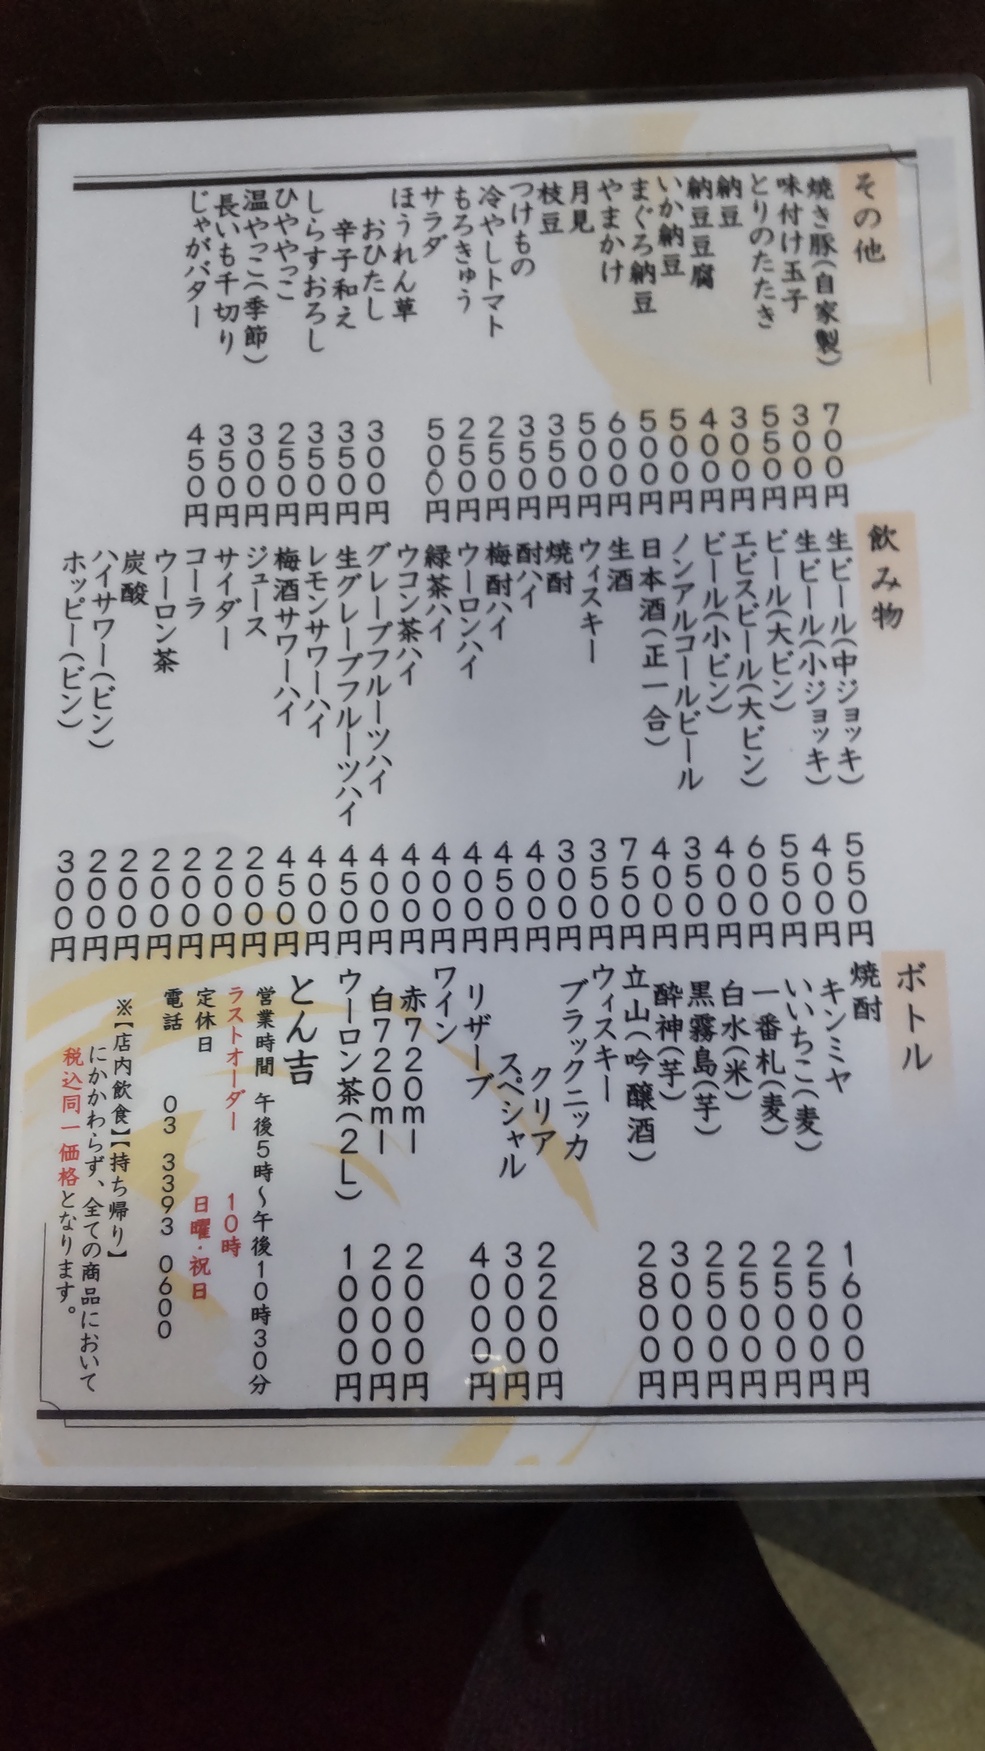 その他
焼き豚(自家製) 700円
味付け玉子 300円
とりのたたき 550円
納豆 300円
納豆豆腐 400円
いか納豆 500円
まぐろ納豆 500円
やまかけ 600円
月見 500円
枝豆 350円
つけもの 350円
冷やしトマト 250円
もろきゅう 250円
サラダ 500円
ほうれん草
おひたし 300円
辛子和え 350円
しらすおろし 350円
ひややっこ 250円
温やっこ(季節) 300円
長いも千切り 350円
じゃがバター 450円
飲み物
生ビール(中ジョッキ) 550円
生ビール(小ジョッキ) 400円
ビール(大ビン) 550円
エビスビール(大ビン) 600円
ビール(小ビン) 400円
ノンアルコールビール 350円
日本酒(正一合) 400円
生酒 750円
ウィスキー 350円
焼酎 300円
酎ハイ 400円
梅酎ハイ 450円
ウーロンハイ 400円
緑茶ハイ 400円
ウコン茶ハイ 400円
グレープフルーツハイ 400円
生グレープフルーツハイ 450円
レモンサワーハイ 400円
梅酒サワーハイ 450円
ジュース 200円
サイダー 200円
コーラ 200円
ウーロン茶 200円
炭酸 200円
ハイサワー(ビン) 200円
ホッピー(ビン) 300円
ボトル
焼酎
キンミヤ 1600円
いいちこ(麦) 2500円
一番札(麦) 2500円
白水(米) 2500円
黒霧島(芋) 2500円
酔神(芋) 3000円
立山(吟醸酒) 2800円
ウィスキー
ブラックニッカ
クリア 2200円
スペシャル 3000円
リザーブ 4000円
ワイン
赤720ml 2000円
白720ml 2000円
ウーロン茶(2L) 1000円
とん吉
営業時間 午後5時〜午後10時30分
ラストオーダー 10時
定休日 日曜・祝日
電話 03 3393 0600
※【店内飲食】【持ち帰り】
にかかわらず、全ての商品において
税込同一価格となります。